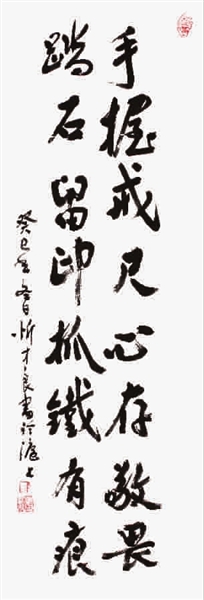 手握戒尺心存敬畏
踏石留印抓鐵有痕
癸巳年冬日忻才良書於滬上